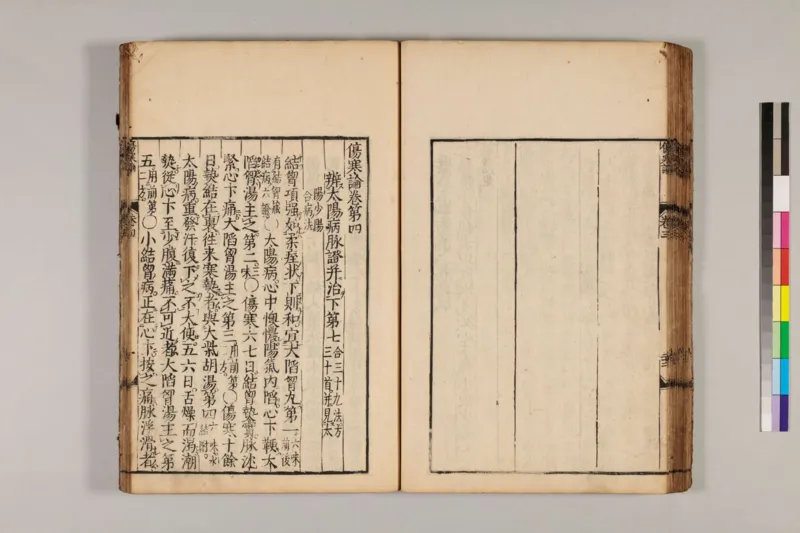 傷寒論卷第四
辨太陽病脉證并治下第七 合三十九法方
三十首并見太
陽少陽
合病法
結胷項强如柔痓狀下則和宜大陷胷丸第一 六味前後
有結胷藏
結病六證
○太陽病心中懊憹陽氣内陷心下鞕大
陷胷湯主之第二 三味○傷寒六七日結胷熱實脉沈
緊心下痛大陷胷湯主之第三 用前第二方○傷寒十餘
日熱結在裏往來寒熱者與大柴胡湯第四
太陽病重發汗復下之不大便五六日舌燥而渴潮
熱從心下至少腹滿痛不可近者大陷胷湯主之第
五 用前第二方○小結胷病正在心下按之痛脉浮滑者
傷寒論
卷四